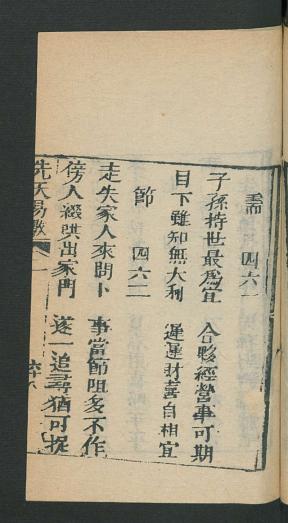 需 四六一
子孫持世最為宜 合夥經營事可期
目下雖知無大利 運運財喜自相宜
節 四六二
走失家人來問卜 事當節阻多不作
傍人綴哄出家門 遂一追尋猶可捉
先天易數 一